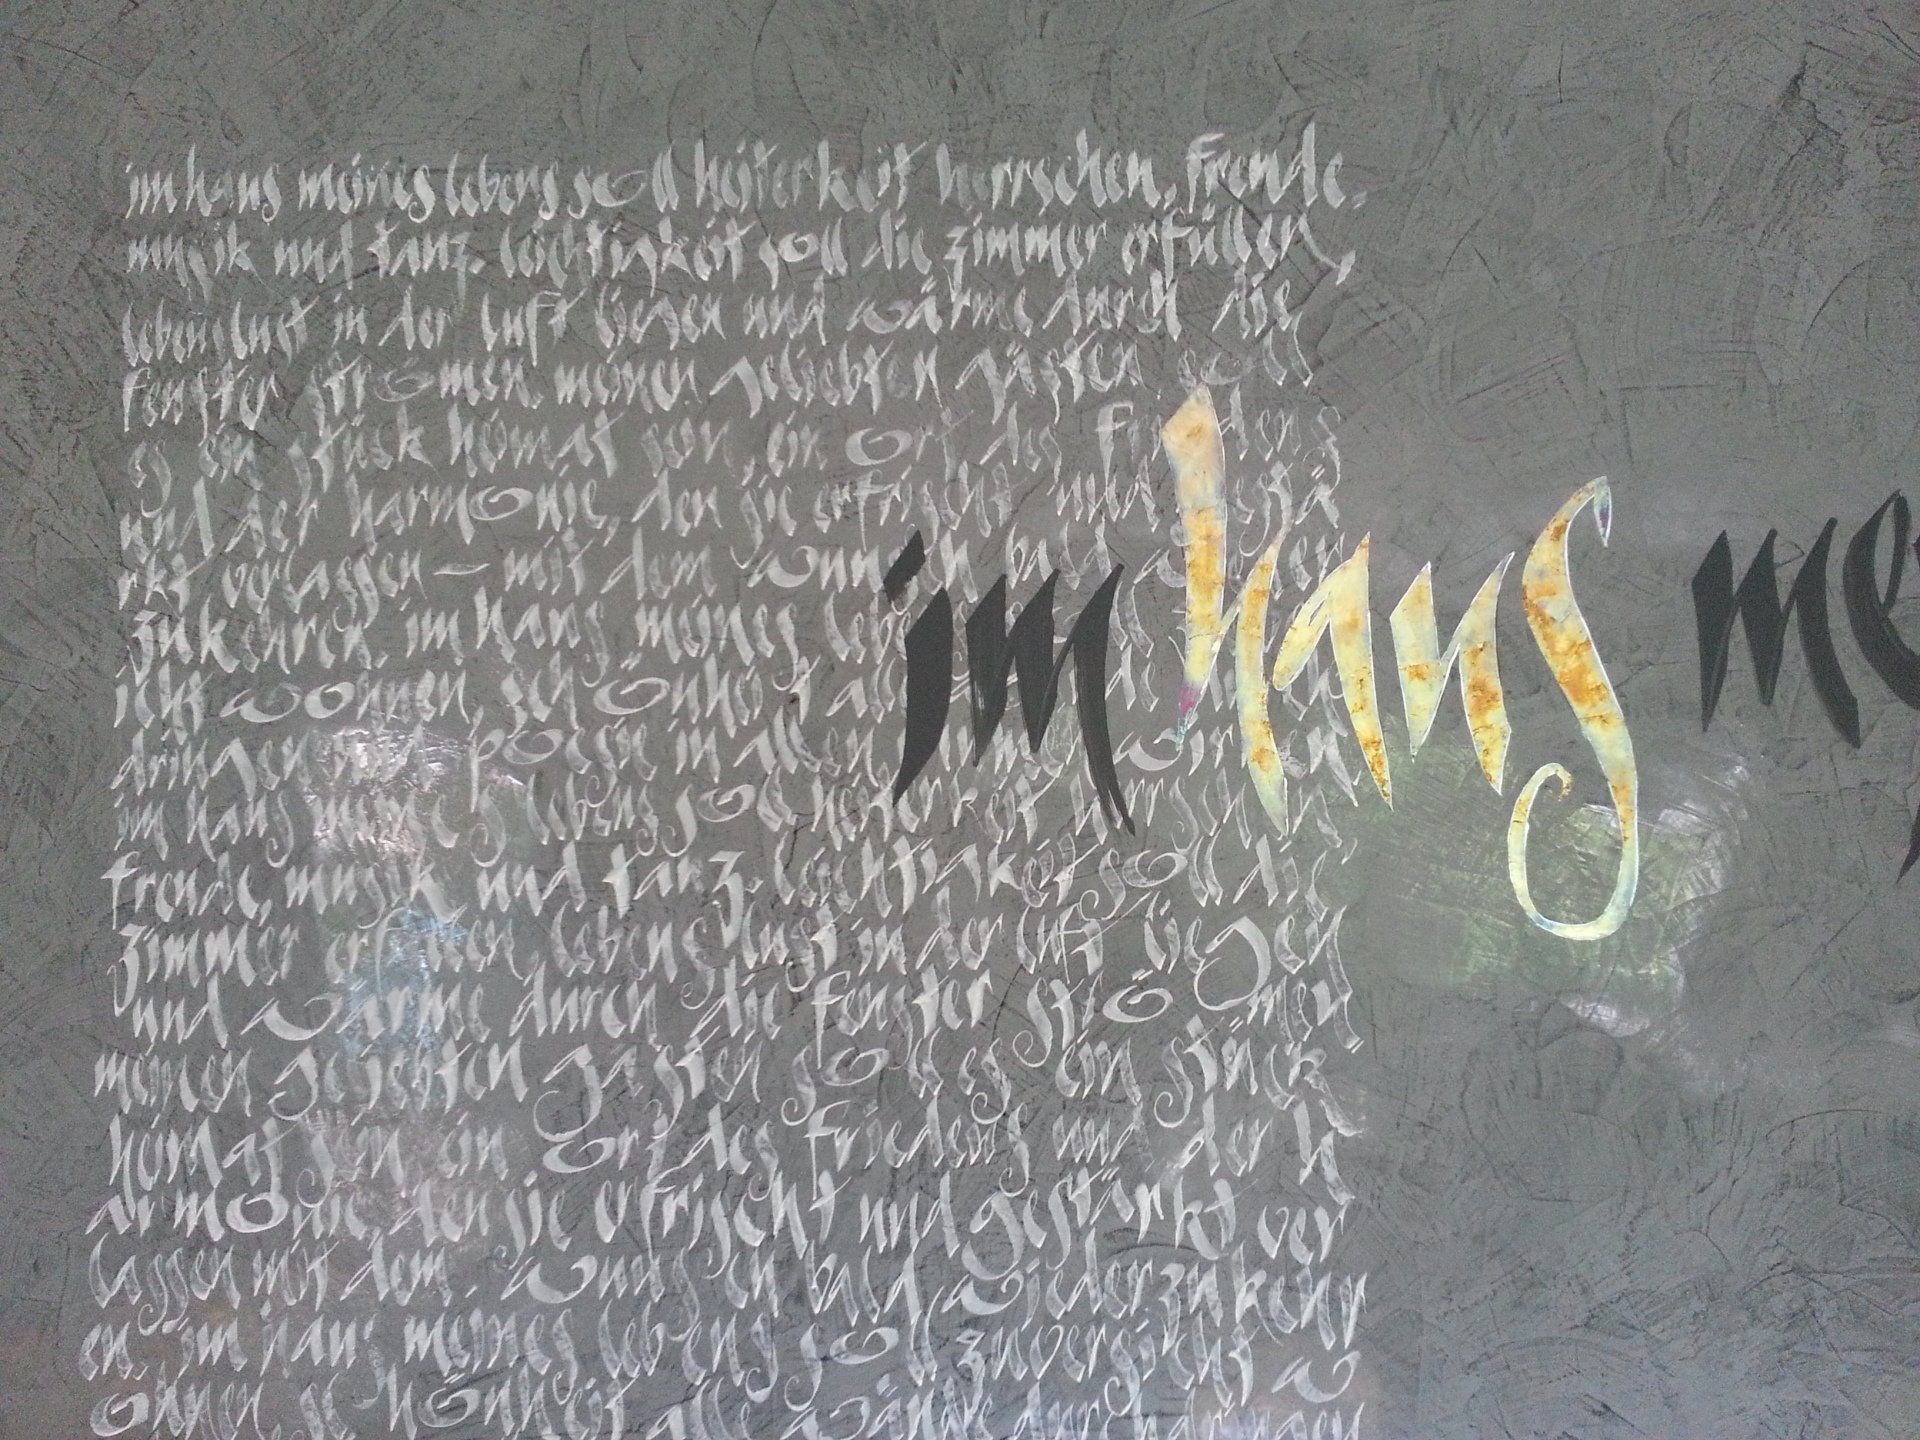 im haus meines lebens soll heiterkeit herrschen. freude,
musik und tanz. leichtigkeit soll die zimmer erfüllen,
lebenslust in der luft liegen und wärme durch die
fenster strömen. meinen geliebten gästen soll
es ein stück heimat sein, ein ort des friedens
und der harmonie, den sie erfrischt und gestä
rkt verlassen – mit dem wunsch bald wieder
zukehren. im haus meines lebens
icht wohnen, schönheit alle
dringen und poesie in allen
im haus meines lebens soll heiterkeit herrschen
freude, musik und tanz. leichtigkeit soll die
zimmer erfüllen, lebenslust in der luft liegen
und wärme durch die fenster strömen
meinen geliebten gästen soll es ein stück
heimat sein ein ort des friedens und der h
armonie den sie erfrischt und gestärkt ver
lassen mit dem wunsch bald wiederzukehr
en. im haus meines lebens soll zuversicht w
ohnen, schönheit alle wände durchdringen
im haus me